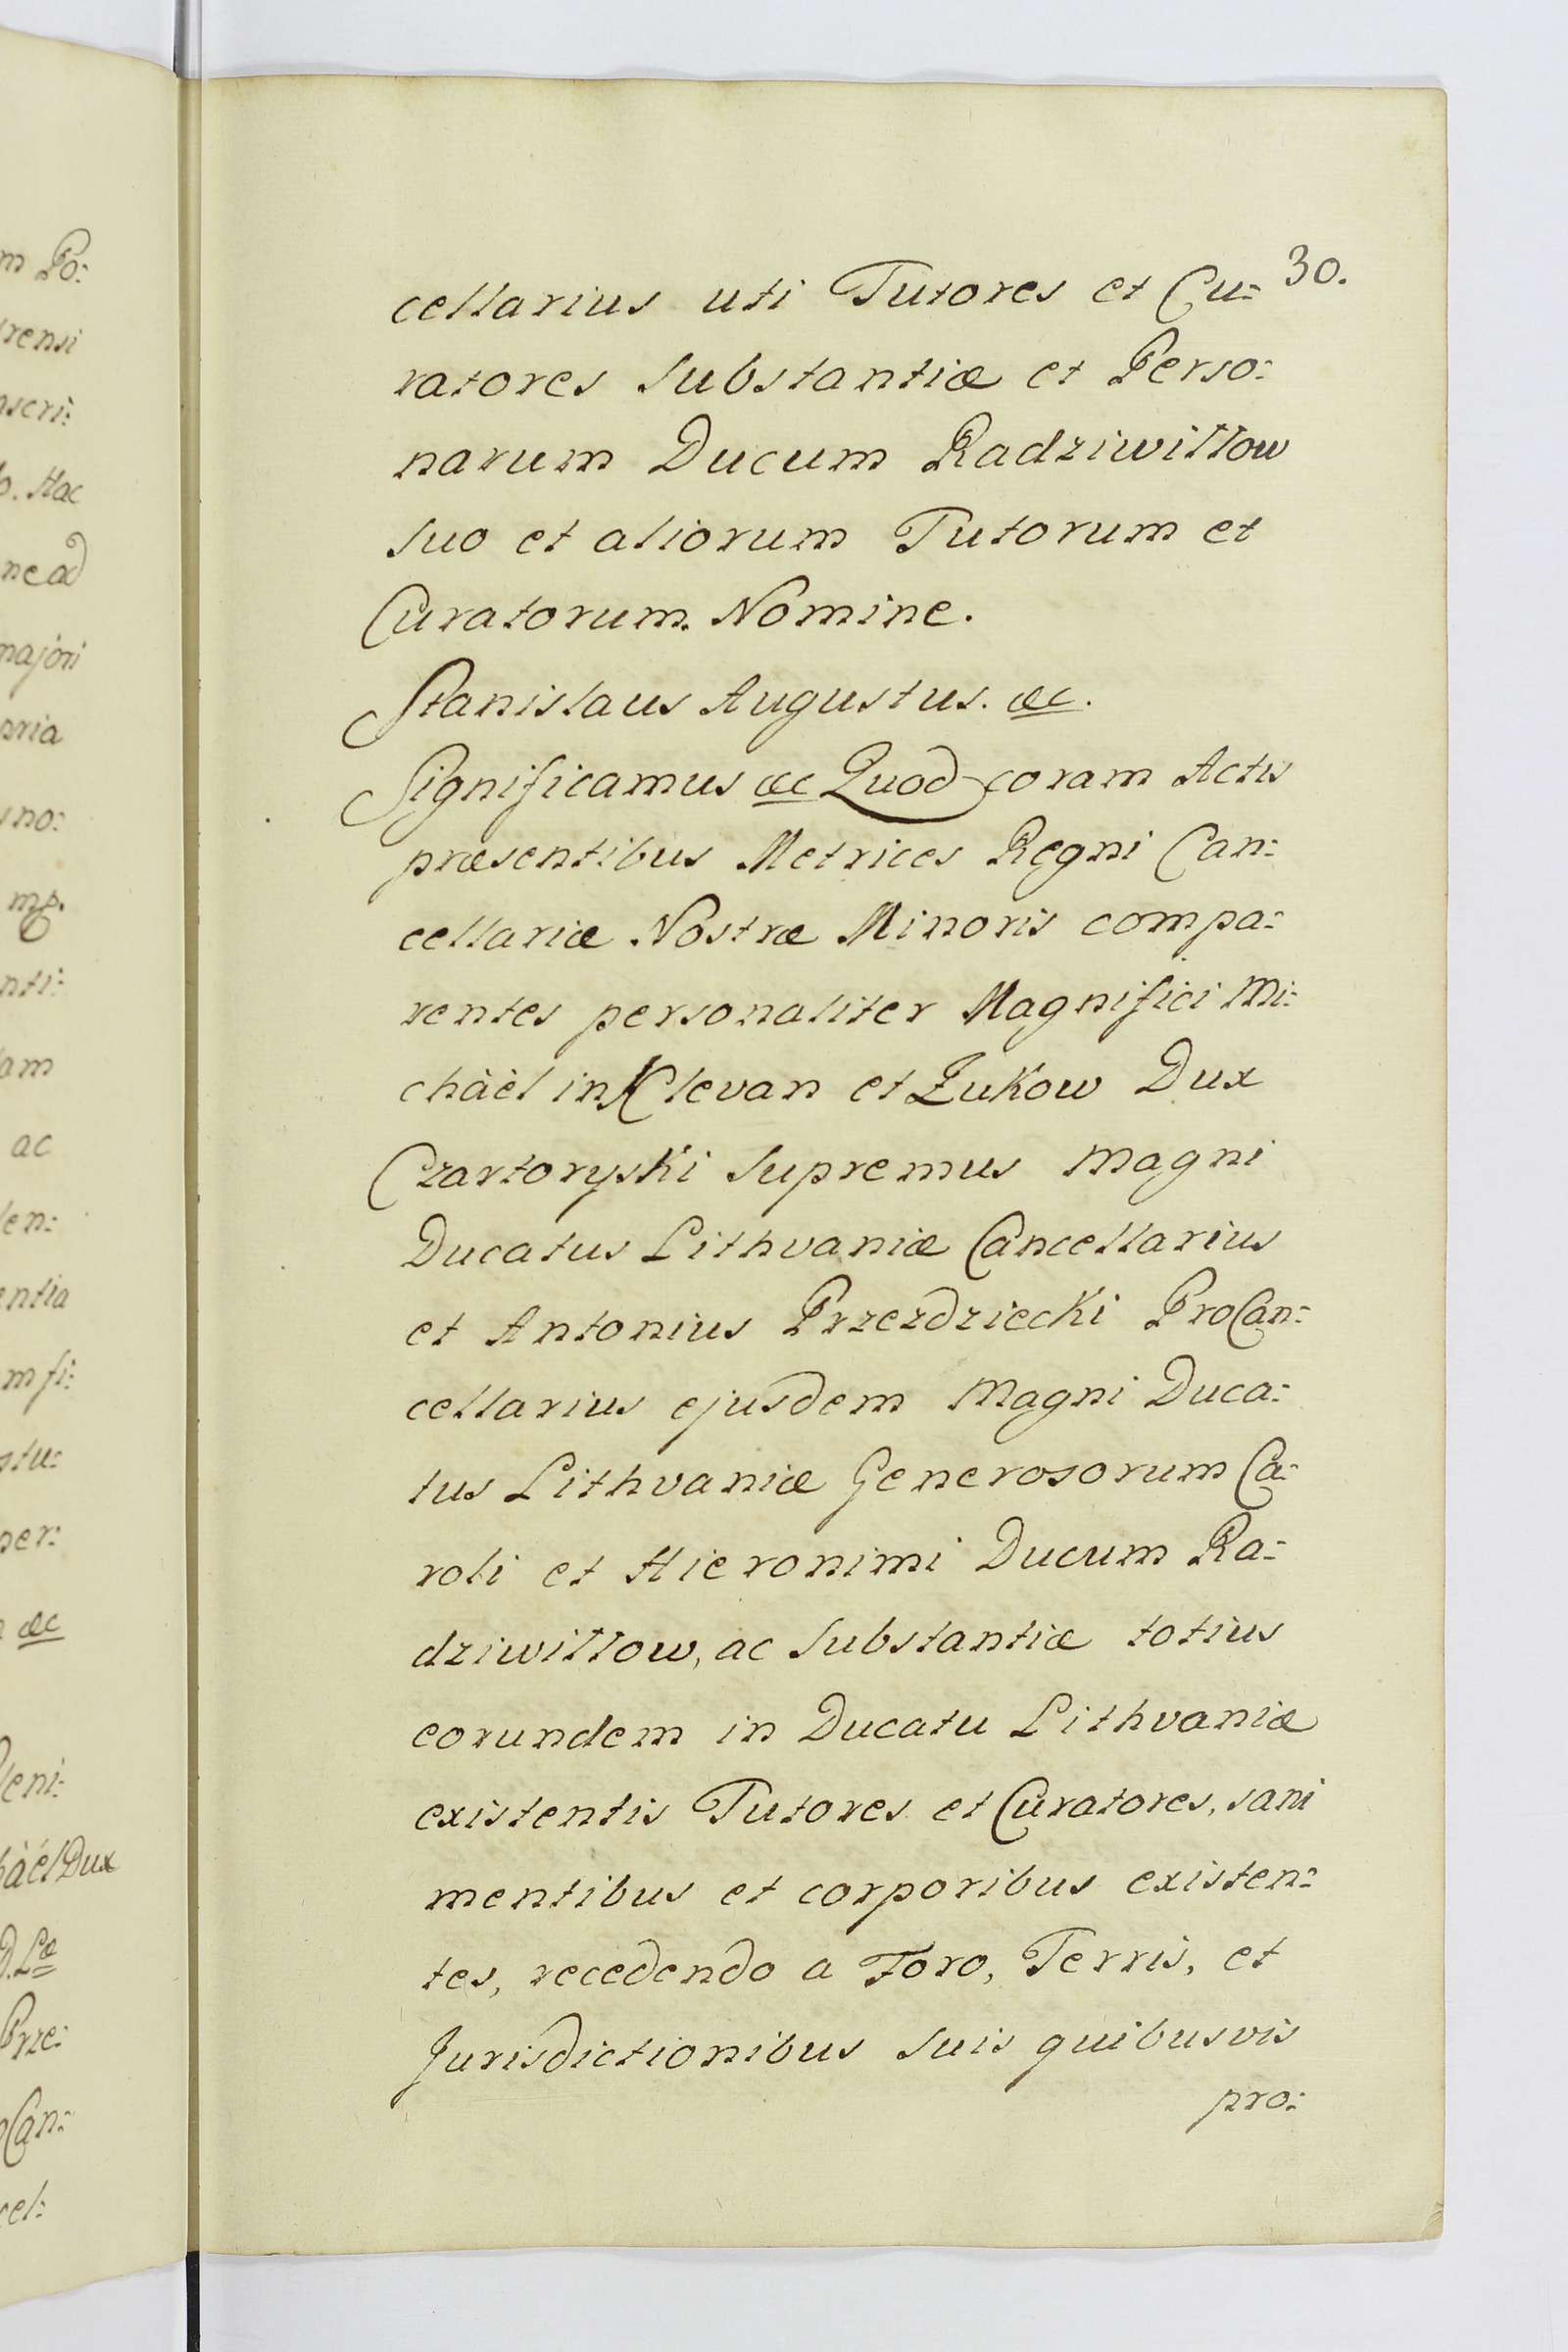 m Po:
rensi
nscri:
o. Hac
ne ad
majori
oria
uno:
mp.
nti:
am
ac
len:
entia
m fi:
stu:
per:
&c
Pleni:
hàél Dux
D. Læ
Prze:
oCan:
cel:
30.
cellarius uti Tutores et Cu:
ratores Substantiæ et Perso:
narum Ducum Radziwiłłow
Suo et aliorum Tutorum et
Curatorum Nomine.
Stanislaus Augustus. &c.
Significamus &c Quod coram Actis
præsentibus Metrices Regni Can:
cellariæ Nostræ Minoris compa:
rentes personaliter Magnifici Mi:
chàèl in Klevan et Zukow Dux
Czartoryski Supremus Magni
Ducatus Lithvaniæ Cancellarius
et Antonius Przezdziecki ProCan:
cellarius ejusdem Magni Duca:
tus Lithvaniæ Generosorum Ca:
roli et Hieronimi Ducum Ra:
dziwiłłow, ac Substantiæ totius
eorundem in Ducatu Lithvaniæ
existentis Tutores et Curatores, sani
mentibus et corporibus existen:
tes, recedendo a Foro, Terris, et
Jurisdictionibus Suis quibusvis
pro: